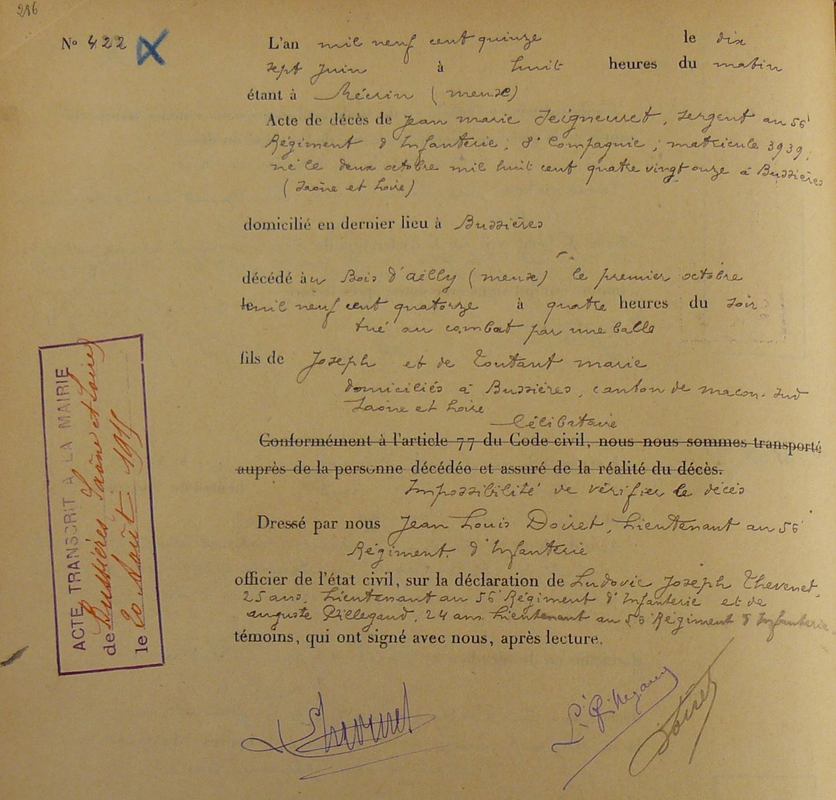 216
N° 422
L'an mil neuf cent quinze le dix
sept juin à huit heures du matin
étant à Mécrin (meuse)
Acte de décès de Jean marie Seigneuret, sergent au 56e
Régiment d'Infanterie, 8e Compagnie, matricule 3939,
né le deux octobre mil huit cent quatre vingt onze à Bussières
(Saône et Loire)
domicilié en dernier lieu à Bussières
décédé au Bois d'ailly (meuse) le premier octobre
mil neuf cent quatorze à quatre heures du soir
tué au combat par une balle
fils de Joseph et de Toutant marie
domiciliés à Bussières, canton de macon-sud
Saône et Loire
Célibataire
Conformément à l'article 77 du Code civil, nous nous sommes transporté
auprès de la personne décédée et assuré de la réalité du décès.
Impossibilité de vérifier le décès
Dressé par nous Jean Louis Doiret, Lieutenant au 56e
Régiment d'Infanterie
officier de l'état civil, sur la déclaration de Ludovic Joseph Thevenet,
25 ans, Lieutenant au 56e Régiment d'Infanterie et de
auguste Pillegaud, 24 ans Lieutenant au 56e Régiment d'Infanterie
témoins, qui ont signé avec nous, après lecture.
ACTE TRANSCRIT A LA MAIRIE
de Bussières Saône et Loire
le 20 Août 1915
Thevenet
Doiret